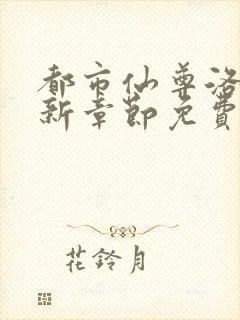 都市仙尊洛
新章節免費
花鈴月